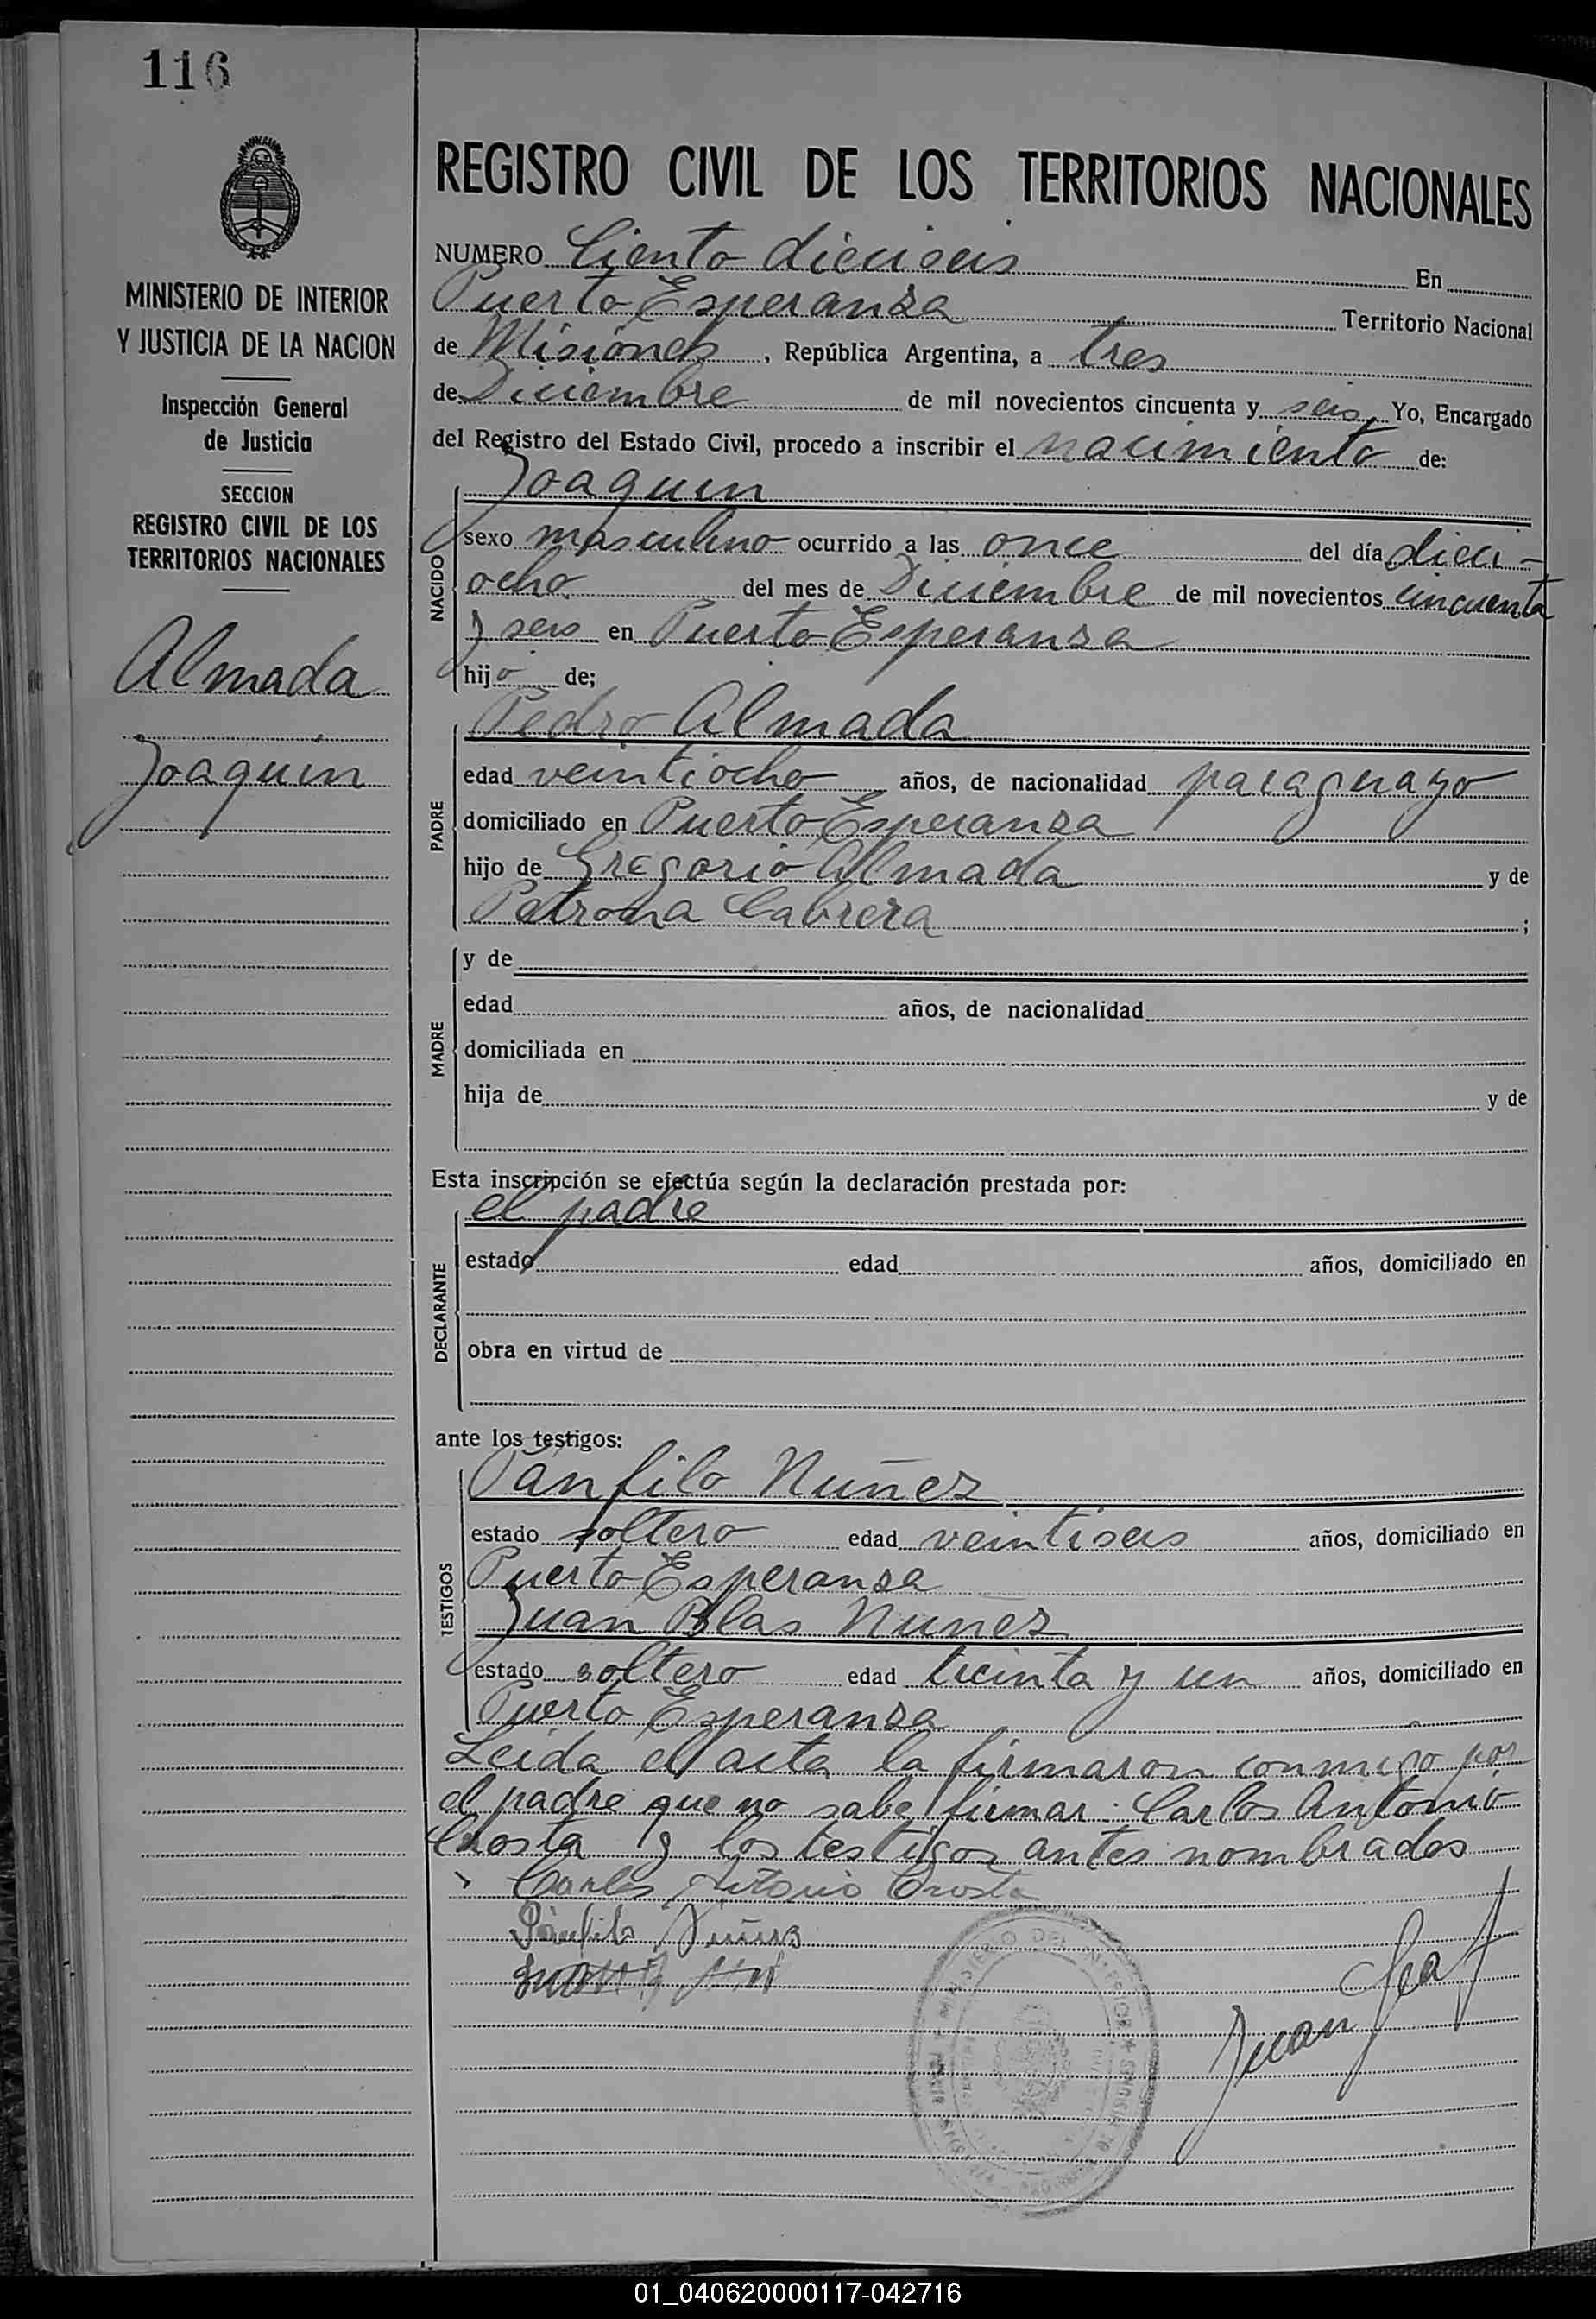 116
MINISTERIO DE INTERIOR
Y JUSTICIA DE LA NACION
Inspección General
de Justicia
SECCION
REGISTRO CIVIL DE LOS
TERRITORIOS NACIONALES
Almada
Joaquin
REGISTRO CIVIL DE LOS TERRITORIOS NACIONALES
NUMERO Ciento dieciseis En
Puerto Esperanza Territorio Nacional
de Misiones, República Argentina, a tres
de Diciembre de mil novecientos cincuenta y seis, Yo, Encargado
del Registro del Estado Civil, procedo a inscribir el nacimiento de:
NACIDO
Joaquin
sexo masculino ocurrido a las once del día dieci-
ocho del mes de Diciembre de mil novecientos cincuenta
y seis en Puerto Esperanza
hijo de;
PADRE
Pedro Almada
edad veintiocho años, de nacionalidad paraguayo
domiciliado en Puerto Esperanza
hijo de Gregorio Almada y de
Petrona Cabrera ;
MADRE
y de
edad años, de nacionalidad
domiciliada en
hija de y de
Esta inscripción se efectúa según la declaración prestada por:
DECLARANTE
el padre
estado edad años, domiciliado en
obra en virtud de
ante los testigos:
TESTIGOS
Pánfilo Nuñez
estado soltero edad veintiseis años, domiciliado en
Puerto Esperanza
Juan Blas Nuñez
estado soltero edad treinta y un años, domiciliado en
Puerto Esperanza
Leida el acta la firmaron conmigo por
el padre que no sabe firmar: Carlos Antonio
y los testigos antes nombrados
Carlos Antonio
Pánfilo Nuñez
Juan
MINISTERIO DEL INTERIOR
01_040620000117-042716